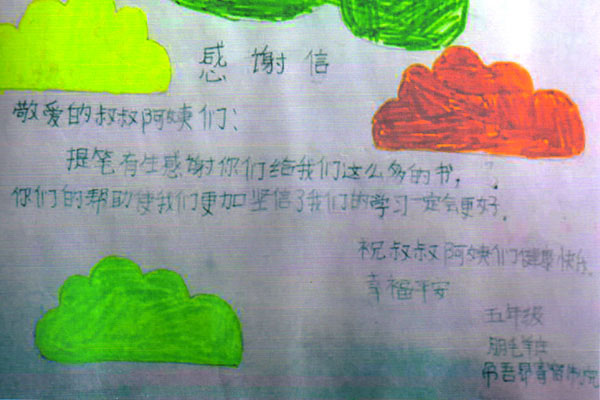 感谢信
敬爱的叔叔阿姨们:
提笔有生感谢你们给我们这么多的书,
你们的帮助使我们更加坚信了我们的学习一定会更好。
祝叔叔阿姨们健康快乐。
幸福平安
五年级